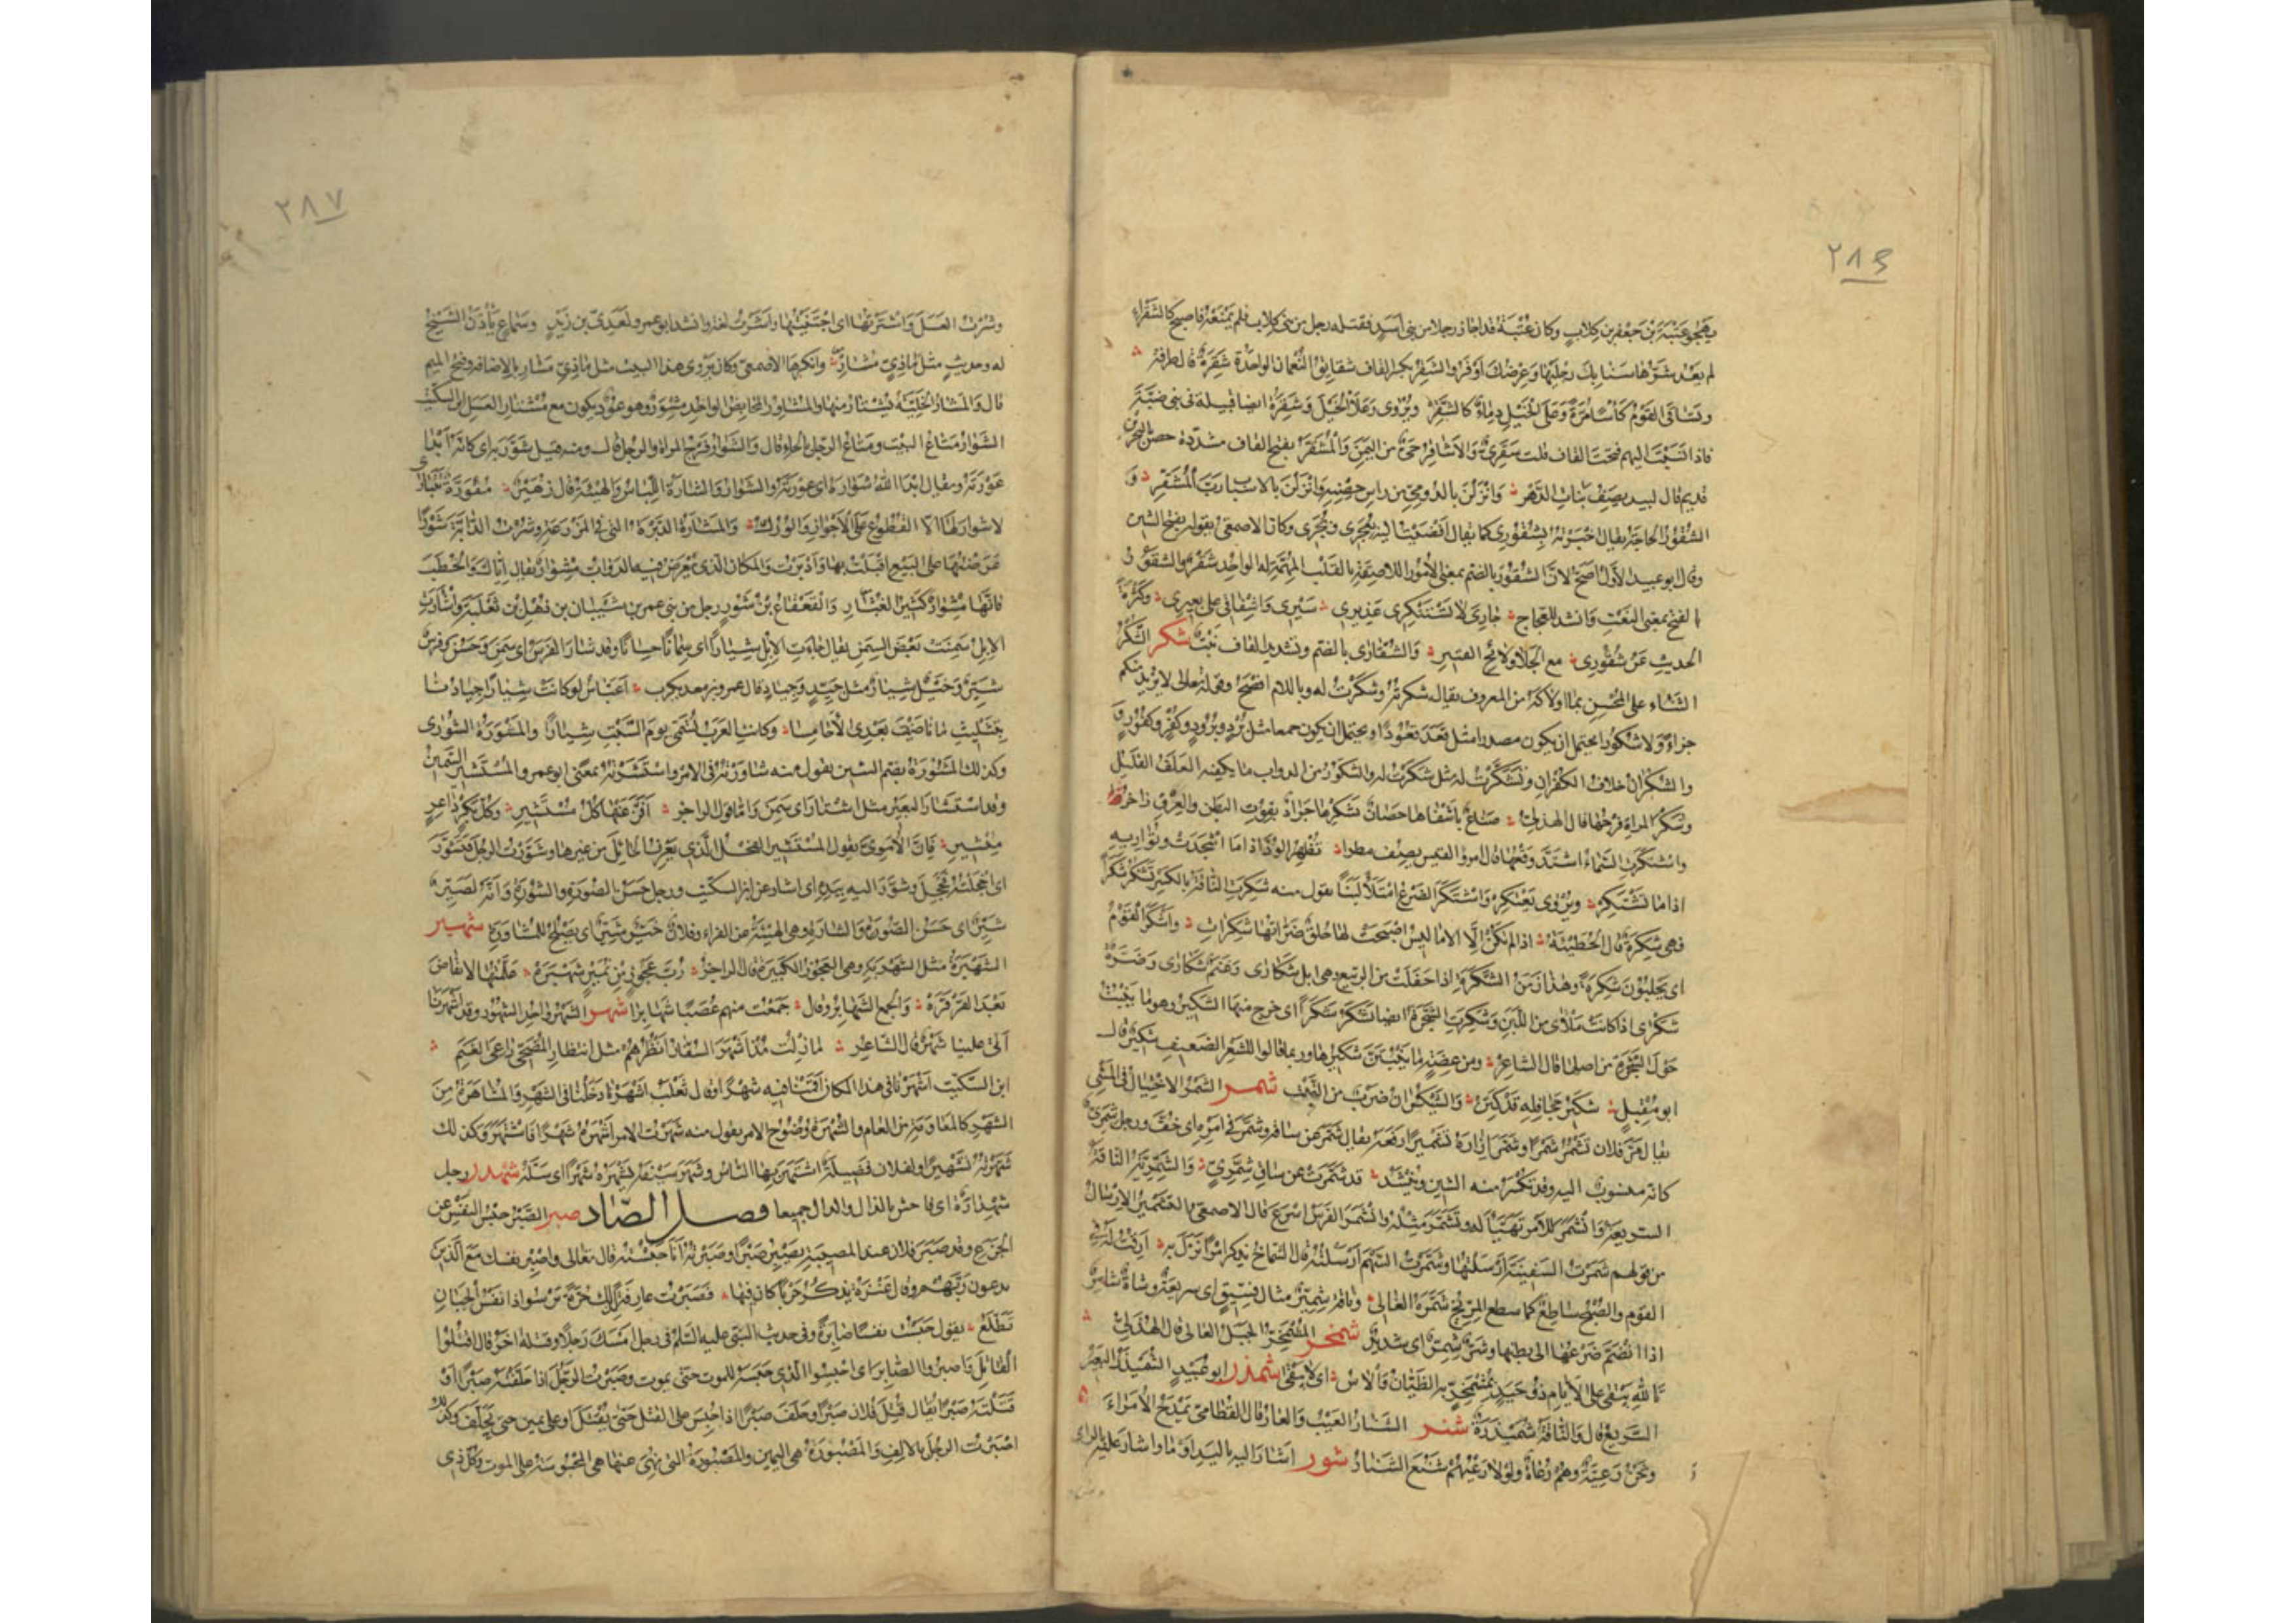 ٢٨٦
يهجو عتبة بن جعفر بن كلاب وكان عتبة قد اجاز رجلا من بني اسد فقتله رجل من بني كلاب فلم يمنعه فاصبح كالشقراء
لم يعد شرّها سنابك رجليها وعرضك اوفر والشقر بكسر القاف شقايق النعمان الواحدة شقرة قال طرفة
وتساقى القوم كأسا مرة وعلى الخيل دماء كالشقر ويروى وعلا الخيل وشقرة ايضا قبيلة في بني ضبة
فاذا نسبت اليهم فتحت القاف قلت شقري والاشاقر حي من اليمن والمشقر بفتح القاف مشددة حصن بالبحرين
قديم قال لبيد يصف بنات الدهر وانزلن بالدومي من راس حصنه وانزلن بالاسباب رب المشقر و
الشقور الحاجة يقال اخبرته بشقوري كما يقال افضيت اليه بعجري وبجري وكان الاصمعي يقوله بفتح الشين
وقال ابو عبيد الاول اصح لان الشقور بالضم بمعنى الامور اللاصقة بالقلب المهمة له الواحد شقر والشقور
بالفتح بمعنى النعت وانشد للعجاج جاري لا تستنكري عذيري سيري واشفاقي على بعيري وكثرة
الحديث عن شقوري مع الجلا ولائح القتير والشقارى بالضم وتشديد القاف نبت شكر الشكر
الثناء على المحسن بما اولاكه من المعروف يقال شكرته وشكرت له وباللام افصح وقوله تعالى لا نريد منكم
جزاء ولا شكورا يحتمل ان يكون مصدرا مثل قعد قعودا ويحتمل ان يكون جمعا مثل برد وبرود وكفر وكفور و
والشكران خلاف الكفران وتشكرت له مثل شكرت له والشكور من الدواب ما يكفيه العلف القليل
وشكر المراة فرجها قال الهذلي صناع باشفاها حصان بشكرها جواد بقوت البطن والعرق زاخر
واشتكرت السماء اشتد وقعها قال امرؤ القيس يصف مطرا تظهر الود اذا ما اشجذت وتواريه
اذا ما تشتكر ويروى تعتكر واشتكر الضرع امتلأ لبنا تقول منه شكرت الناقة بالكسر تشكر شكرا
فهي شكرة قال الحطيئة اذا لم تكن الا الاماليس اصبحت لها حلق ضراتها شكرات واشكر القوم
اي يحلبون شكرة وهذا زمن الشكرة اذا حفلت من الربيع وهي ابل شكارى وغنم شكارى وضرة
شكرى اذا كانت ملأى من اللبن وشكرت الشجرة ايضا تشكر شكرا اي خرج منها الشكير وهو ما ينبت
حول الشجرة من اصلها قال الشاعر ومن عضة ما ينبتن شكيرها وربما قالوا للشعر الضعيف شكير قال
ابن مقبل شكير جحافله قد كتن والشيكران ضرب من النبت شمر الشمر الاختيال في المشي
يقال مر فلان يشمر شمرا وشمر ازاره تشميرا رفعه يقال شمر عن ساقه وشمر في امره اي خف ورجل شمري
كانه منسوب اليه وقد تكسر منه الشين وينشد قد شمرت عن ساق شمري والشمرية الناقة
السريعة وانشمر للامر تهيأ له وتشمر مثله وانشمر الفرس اسرع قال الاصمعي التشمير الارسال
من قولهم شمرت السفينة ارسلتها وشمرت السهم ارسلته قال الشماخ يذكر امرا نزل به ارقت له في
القوم والصبح ساطع كما سطع المريخ شمره الغالي وناقة شمير مثال فسيق اي سريعة وشاة شامر
اذا انضم ضرعها الى بطنها وشر شمر اي شديد شمخر المشمخر الجبل العالي قال الهذلي
تالله يبقى على الايام ذو حيد بمشمخر به الظيان والاس اي لا يبقى شمذر ابو عبيد الشميذر البعير
السريع قال والناقة شميذرة شنر الشنار العيب والعار قال القطامي يمدح الامراء
ونحن رعية وهم رعاة ولولا رعيهم شنع الشنار شور اشار اليه باليد اومأ واشار عليه بالراي
٢٨٧
وشرت العسل واشترتها اي اجتنيتها واشرت لغة وانشد ابو عمرو لعدي بن زيد وسماع يأذن الشيخ
له وحديث مثل ماذي مشار وانكرها الاصمعي وكان يروي هذا البيت مثل ماذي مشار بالاضافة وفتح الميم
قال والمشار الخلية يشتار منها والمشاور المحابض الواحد مشور وهو عود يكون مع مشتار العسل ابن السكيت
الشوار متاع البيت ومتاع الرحل بالحاء قال والشوار فرج المراة والرجل قال ومنه قيل شور به اي كانه ابدا
عورته ويقال ابدا الله شواره اي عورته والشوار والشارة اللباس والهيئة قال زهير مقورة تتبارى
لا شوار لها الا القطوع على الاجواز والورك والمشارة الدبرة التي في المزرعة وشرت الدابة شورا
عرضتها على البيع اقبلت بها وادبرت والمكان الذي تعرض فيه الدواب مشوار يقال اياك والخطب
فانها مشوار كثير العثار والقعقاع بن شور رجل من بني عمرو بن شيبان بن ذهل بن ثعلبة واشارت
الابل سمنت بعض السمن يقال جاءت الابل شيارا اي سمانا حسانا وقد شار الفرس اي سمن وحسن وفرس
شير وخيل شيار مثل جيد وجياد قال عمرو بن معديكرب اعباس لو كانت شيارا جيادنا
بتثليث ما ناصيت بعدي الاحامسا وكانت العرب تسمي يوم السبت شيارا والمشورة الشورى
وكذلك المشورة بضم الشين تقول منه شاورته في الامر واستشرته بمعنى ابو عمرو المستشير السمين
وقد استشار البعير مثل اشتار اي سمن واما قول الراجز افز عنها كل مستشير وكل بكر داعر
مئشير فان الاموي يقول المستشير الفحل الذي يعرف الحائل من غيرها وشورت الرجل فتشور
اي اخجلته فخجل وشور اليه بيده اي اشار عن ابن السكيت ورجل حسن الصورة والشورة وانه لصير
شير اي حسن الصورة والشارة وهي الهيئة عن الفراء وفلان خير شير اي يصلح للمشاورة شهبر
الشهبرة مثل الشهربة وهي العجوز الكبيرة قال الراجز رب عجوز من نمير شهبره علمتها الانقاض
بعد القرقره والجمع الشهابر وقال جمعت منهم عصبا شهابرا شهر الشهر واحد الشهور وقد اشهرنا
اتى علينا شهر قال الشاعر ما زلت مذ اشهر السفار انظرهم مثل انتظار المضحي راعي الغنم
ابن السكيت اشهرنا في هذا المكان اقمنا فيه شهرا وقال ثعلب اشهرنا دخلنا في الشهر والمشاهرة من
الشهر كالمعاومة من العام والشهرة وضوح الامر تقول منه شهرت الامر اشهره شهرا فاشتهر وكذلك
شهرته تشهيرا ولفلان فضيلة اشتهرها الناس وشهر سيفه يشهره شهرا اي سله شهدر رجل
شهدارة اي فاحش بالذال والدال جميعا فصل الصاد صبر الصبر حبس النفس عن
الجزع وقد صبر فلان عند المصيبة يصبر صبرا وصبرته انا حبسته قال تعالى واصبر نفسك مع الذين
يدعون ربهم وقال عنترة يذكر حربا كان فيها فصبرت عارفة لذلك حرة ترسو اذا نفس الجبان
تطلع يقول حبست نفسا صابرة وفي حديث النبي عليه السلم في رجل امسك رجلا وقتله اخر قال اقتلوا
القاتل واصبروا الصابر اي احبسوا الذي حبسه للموت حتى يموت وصبرت الرجل اذا حلفته صبرا او
قتلته صبرا يقال قتل فلان صبرا وحلف صبرا اذا حبس على القتل حتى يقتل او على يمين حتى يحلف وكذلك
اصبرت الرجل بالالف والمصبورة هي اليمين والمصبورة التي نهي عنها هي المحبوسة على الموت وكل ذي